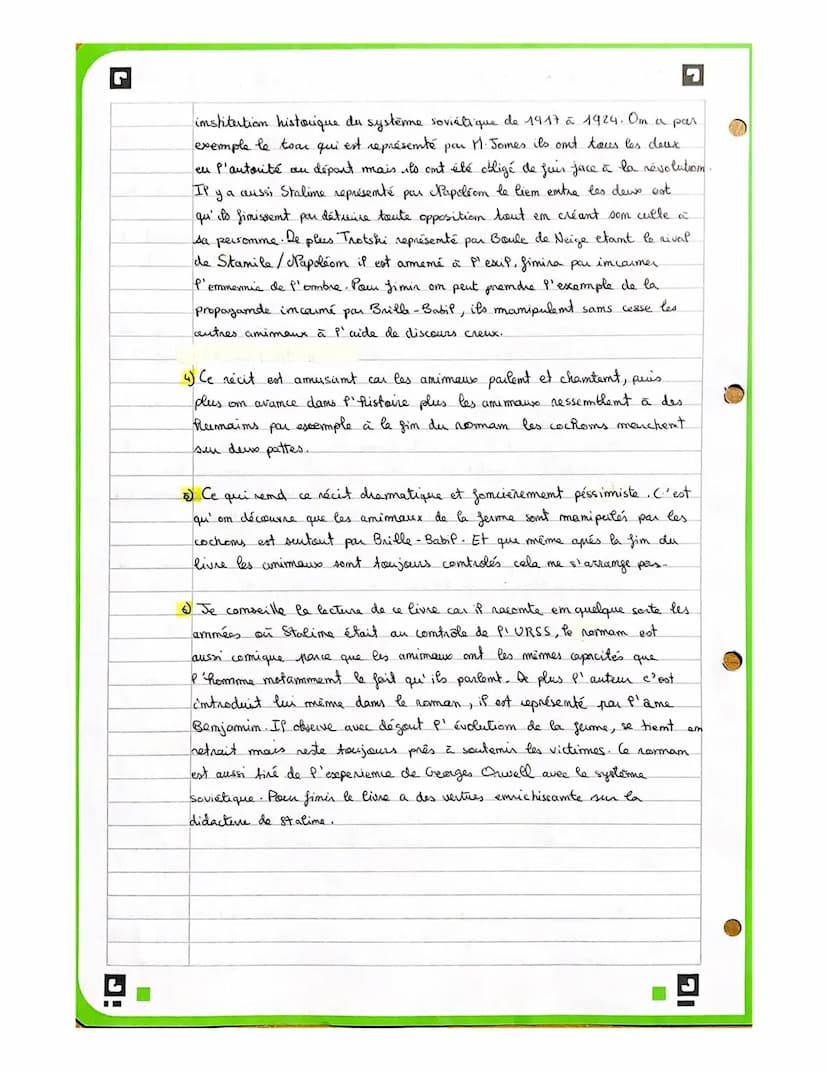 institution historique du système soviétique de 1917 à 1924. On a par
exemple le tsar qui est représenté par M. Jones ils ont tous les deux
eu l'autorité au départ mais ils ont été obligé de fuir face à la révolution.
Il y a aussi Staline représenté par Napoléon le lien entre les deux est
qu'ils finissent par détruire toute opposition tout en créant son culte à
sa personne. De plus Trotski représenté par Boule de Neige etant le rival
de Stanile / Napoléon il est ammené à l'exil, finira par incarner
l'emnemie de l'ombre. Pour finir on peut prendre l'exemple de la
propagande incarné par Brille-Babil, ils manipulent sans cesse les
autres animaux à l'aide de discours creux.
4) Ce récit est amusant car les animaux parlent et chantent, puis
plus on avance dans l'histoire plus les animaux ressemblent à des
humains par exemple à la fin du roman les cochons marchent
sur deux pattes.
5) Ce qui rend ce récit dramatique et foncièrement péssimiste. C'est
qu'on découvre que les animaux de la ferme sont manipulés par les
cochons est surtout par Brille-Babil. Et que même après la fin du
livre les animaux sont toujours controlés cela ne s'arrange pas.
6) Je conseille la lecture de ce livre car il raconte en quelque sorte les
années où Staline était au contrôle de l'URSS, le romman est
aussi comique parce que les animaux ont les mêmes capacités que
l'homme notamment le fait qu'ils parlent. De plus l'auteur c'est
introduit lui même dans le roman, il est représenté par l'âne
Benjamin. Il observe avec dégout l'évolution de la ferme, se tient en
retrait mais reste toujours près à soutenir les victimes. Ce romman
est aussi tiré de l'experience de Georges Orwell avec le système
soviétique. Pour finir le livre a des vertues enrichissante sur la
didacture de Staline.